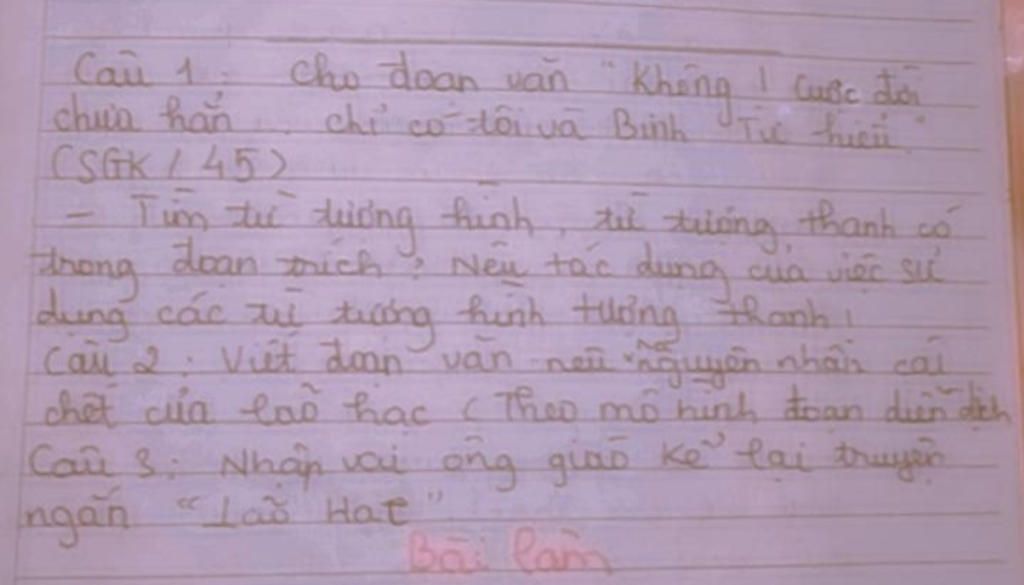 Câu 1: Cho đoạn văn "Không! Cuộc đời
chưa hẳn .. chỉ có tôi và Binh Tư hiểu"
(SGK / 45)
- Tìm từ tượng hình, từ tượng thanh có
trong đoạn trích? Nêu tác dụng của việc sử
dụng các từ tượng hình tượng thanh!
Câu 2: Viết đoạn văn nêu "nguyên nhân cái
chết của lão hạc (Theo mô hình đoạn diễn dịch
Câu 3: Nhập vai ông giáo kể lại truyện
ngắn "Lão Hạc"
Bài làm